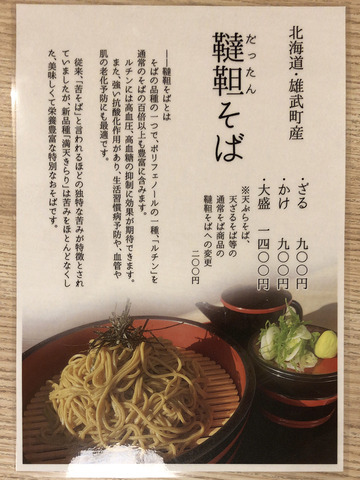 北海道・雄武町産
だったん
韃靼そば
・ざる　九〇〇円
・かけ　九〇〇円
・大盛　一四〇〇円
※天ぷらそば、
天ざるそば等の
通常そば商品の
韃靼そばへの変更
二〇〇円
―韃靼そばとは
そばの品種の一つで、ポリフェノールの一種、「ルチン」を
通常のそばの百倍以上も豊富に含みます。
ルチンには高血圧、高血糖の抑制に効果が期待できます。
また、強い抗酸化作用があり、生活習慣病予防や、血管や
肌の老化予防にも最適です。
従来、「苦そば」と言われるほどの独特な苦みが特徴とされ
ていましたが、新品種「満天きらり」は苦みをほとんどなくし
た、美味しくて栄養豊富な特別なおそばです。